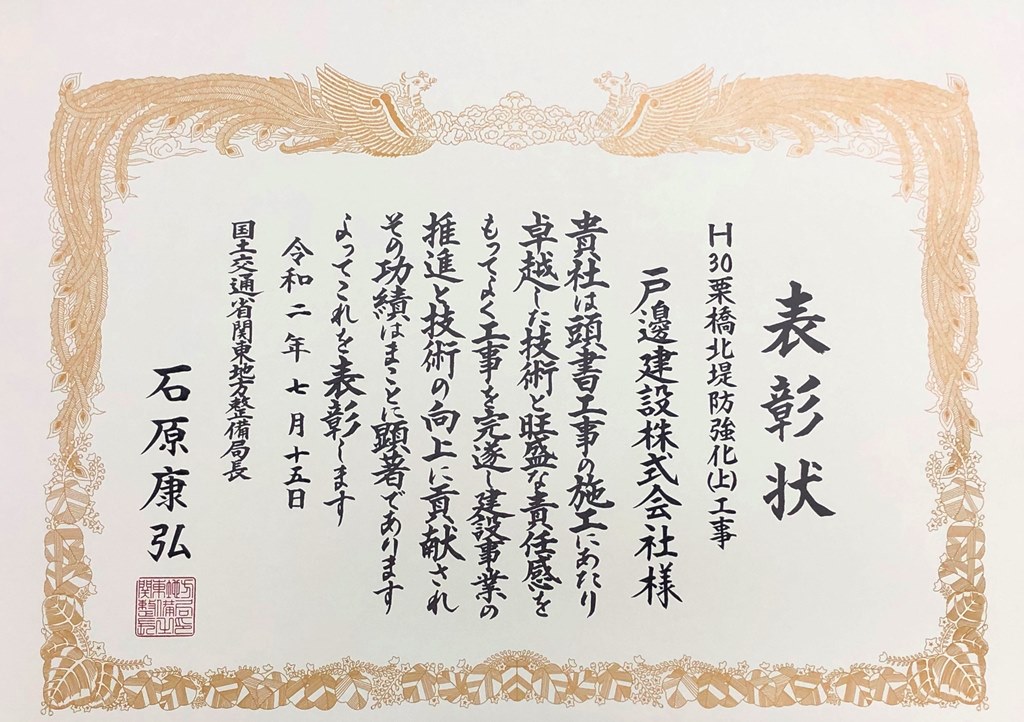 表彰状
H30栗橋北堤防強化(上)工事
戸邊建設株式会社様
貴社は頭書工事の施工にあたり
卓越した技術と旺盛な責任感を
もってよく工事を完遂し建設事業の
推進と技術の向上に貢献され
その功績はまことに顕著であります
よってこれを表彰します
令和二年七月十五日
国土交通省関東地方整備局長
石原康弘